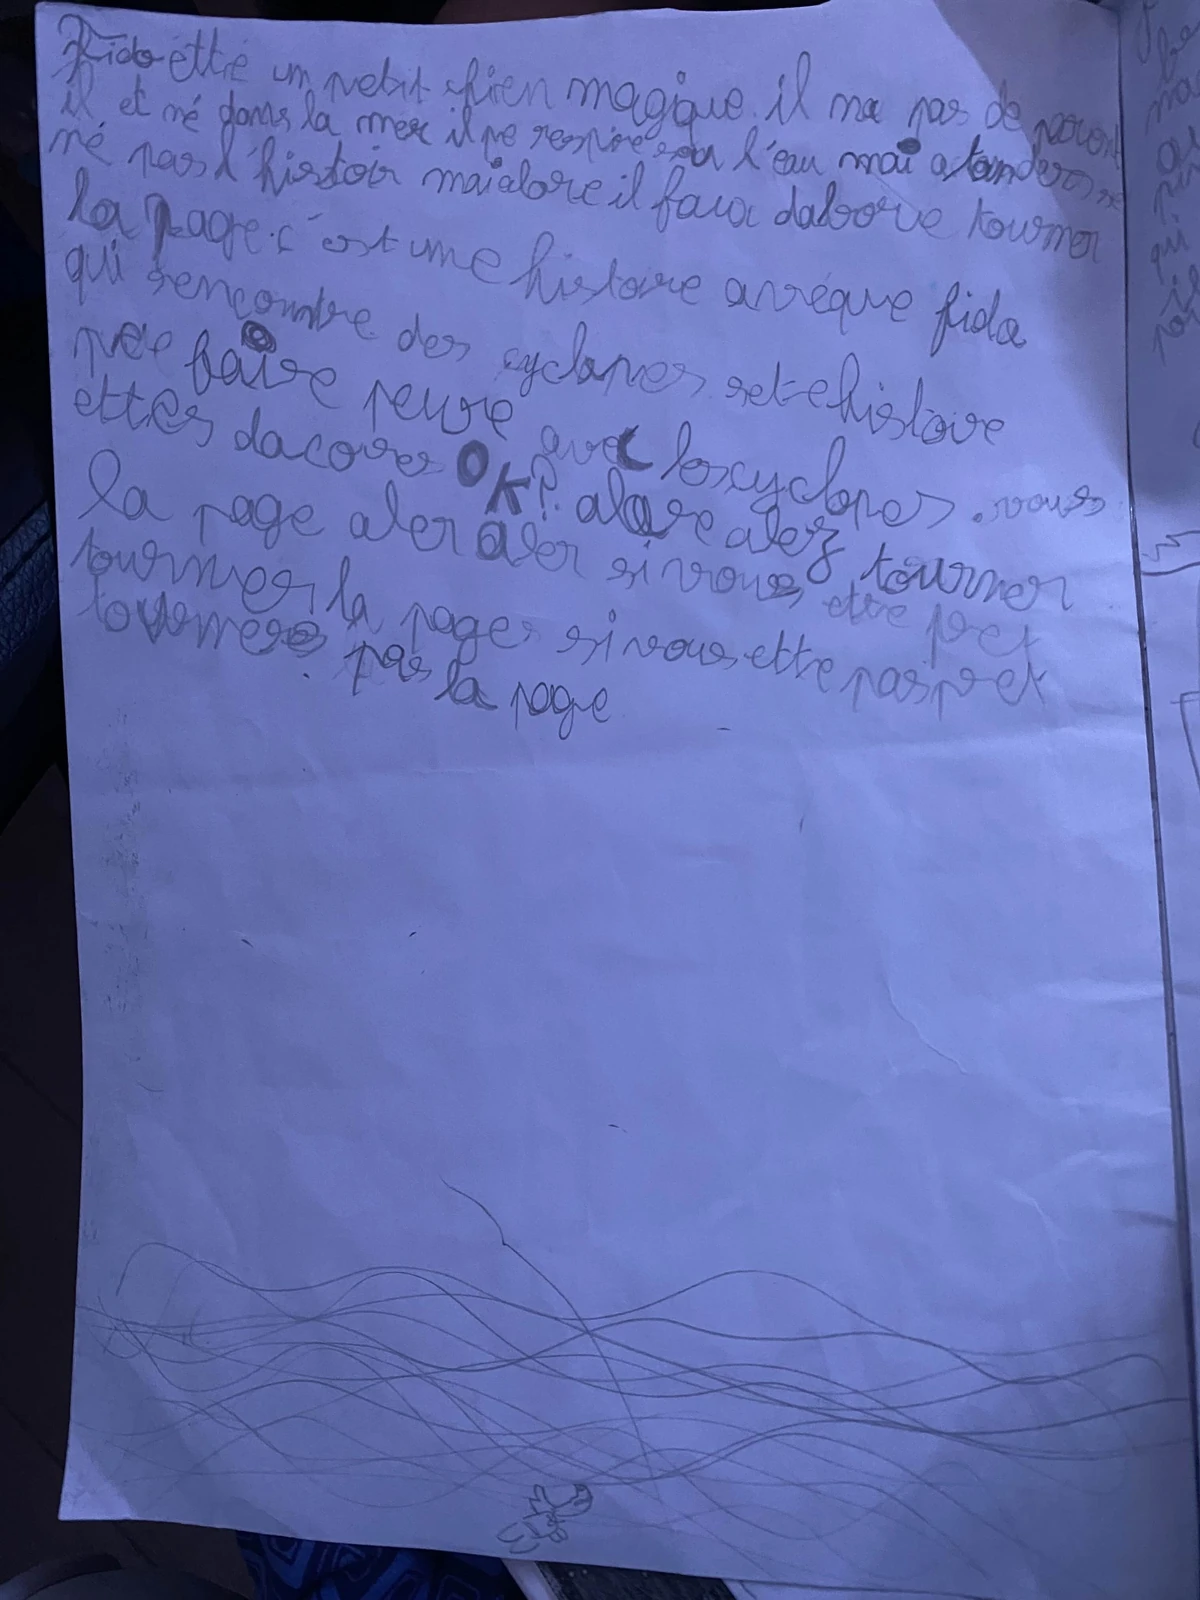 Fido etté un petit chien magique. il na pas de parent
il et né dans la mer il pe respire sou l'eau mai atanders se
né pas l'histoir maialore il faux dabore tourner
la page. c'est une histoire avéque fido
qui rencontre des cyclopes set-ehistoire
pee faire peure avec les cyclopes. vous
ettes dacores OK? alore alez tourner
la page aler aler si vous ettre pret
tourner la page si vous ettre pas pret
tournere pas la page